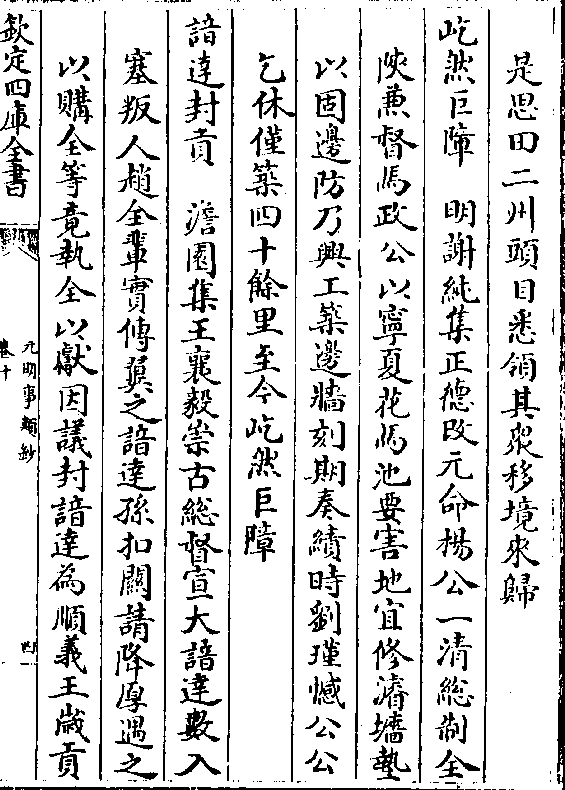 是思田二州頭目悉領其衆移境來歸
屹然巨障　明謝純集正德改元命楊公一清総制全
陜兼督馬政公以寧夏花馬池要害地宜修濬墻塹
以固邊防乃興工築邊牆刻期奏績時劉瑾憾公公
乞休僅築四十餘里至今屹然巨障
諳達封貢　澹園集王襄毅崇古総督宣大諳達數入
塞叛人趙全軰實傅翼之諳達孫扣關請降厚遇之
以購全等竟執全以獻因議封諳達為順義王歲貢
欽定四庫全書
元明事類鈔
卷十
四